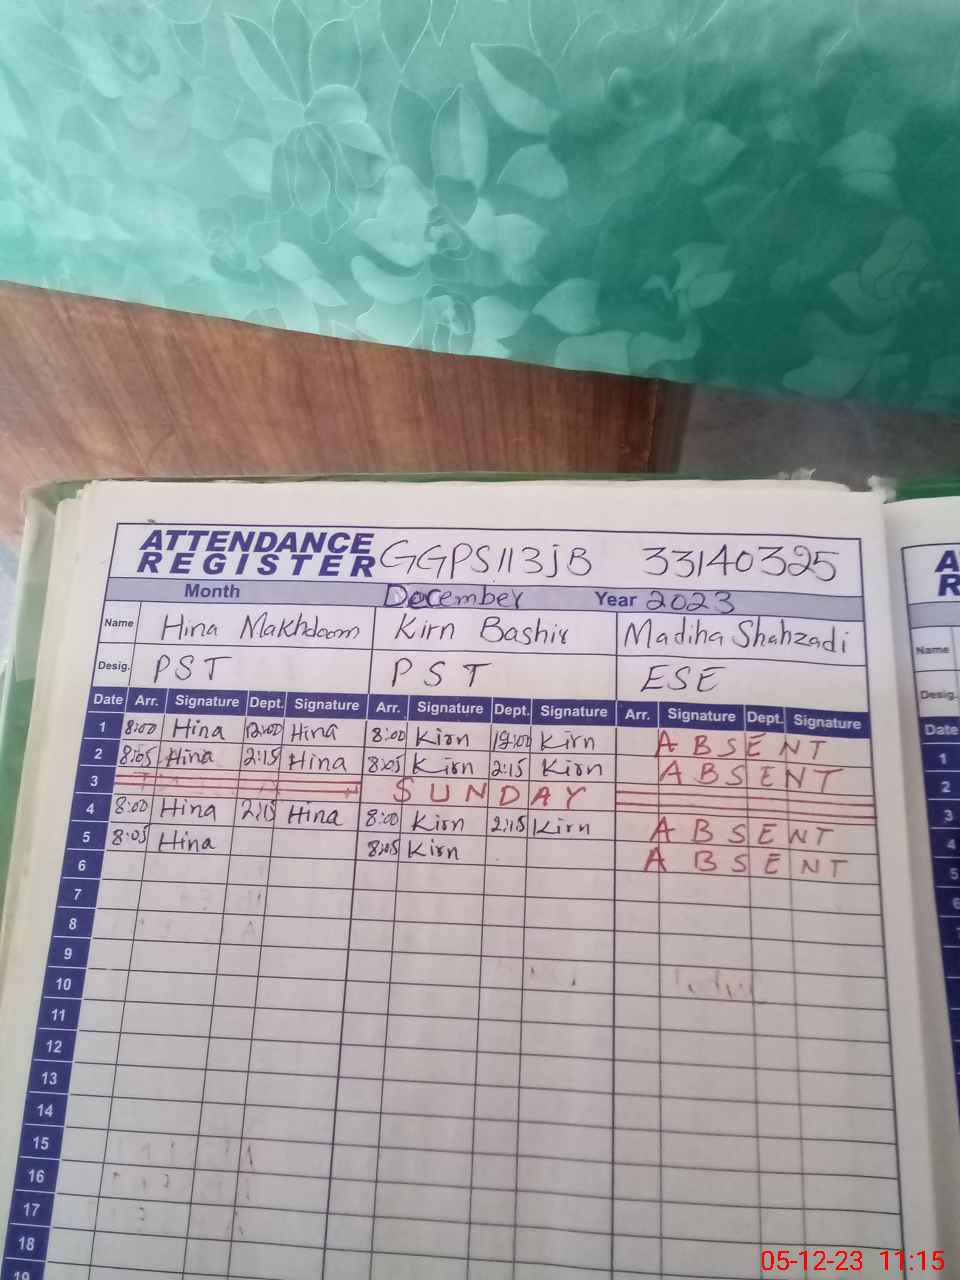 ATTENDANCE REGISTER GGPS113JB 33140325
Month December Year 2023
Name Hina Makhdoom Kirn Bashir Madiha Shahzadi
Desig. PST PST ESE
Date Arr. Signature Dept. Signature Arr. Signature Dept. Signature Arr. Signature Dept. Signature
1 8:00 Hina 12:00 Hina 8:00 Kirn 12:00 Kirn ABSENT
2 8:05 Hina 2:15 Hina 8:05 Kirn 2:15 Kirn ABSENT
3 SUNDAY
4 8:00 Hina 2:15 Hina 8:00 Kirn 2:15 Kirn ABSENT
5 8:05 Hina 8:05 Kirn ABSENT
6
7
8
9
10
11
12
13
14
15
16
17
18
19
A
R
Name
Desig.
Date
1
2
3
4
5
6
7
05-12-23 11:15